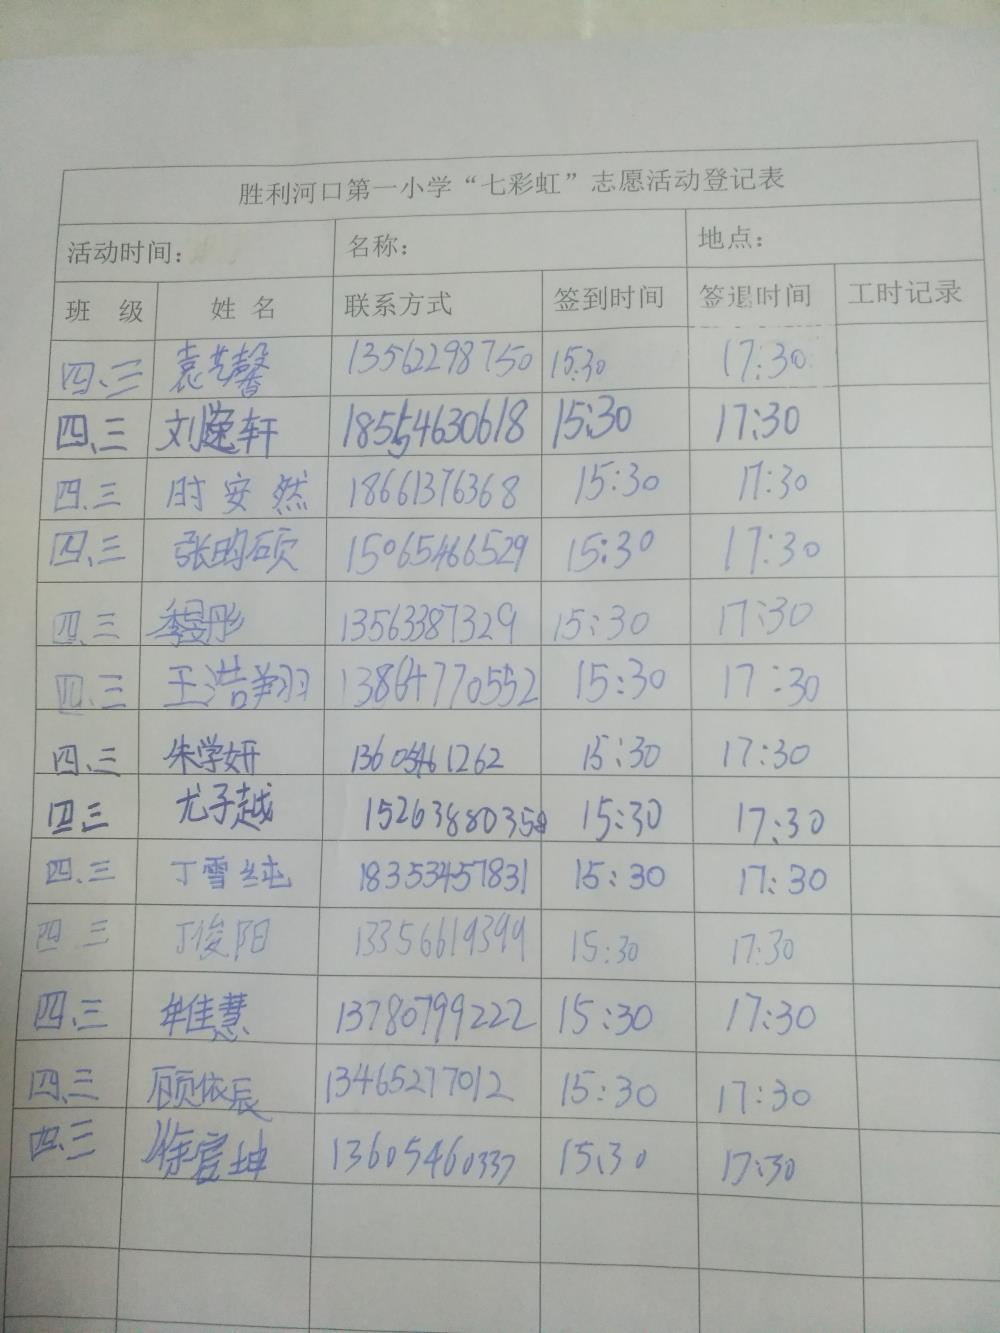 胜利河口第一小学“七彩虹”志愿活动登记表
活动时间： 名称： 地点：
班 级 姓 名 联系方式 签到时间 签退时间 工时记录
四、三 袁艺馨 13562298750 15:30 17:30
四、三 刘逸轩 18554630618 15:30 17:30
四、三 时安然 18661376368 15:30 17:30
四、三 张昀硕 15065466529 15:30 17:30
四、三 13563387329 15:30 17:30
四、三 王浩翔 13864770552 15:30 17:30
四、三 朱学妍 13605461262 15:30 17:30
四、三 尤子越 15263880358 15:30 17:30
四、三 丁雪纯 18353457831 15:30 17:30
四 三 丁俊阳 13356619399 15:30 17:30
四、三 牟佳慧 13780799222 15:30 17:30
四、三 顾依辰 13465277012 15:30 17:30
四、三 徐官坤 13605460337 15:30 17:30